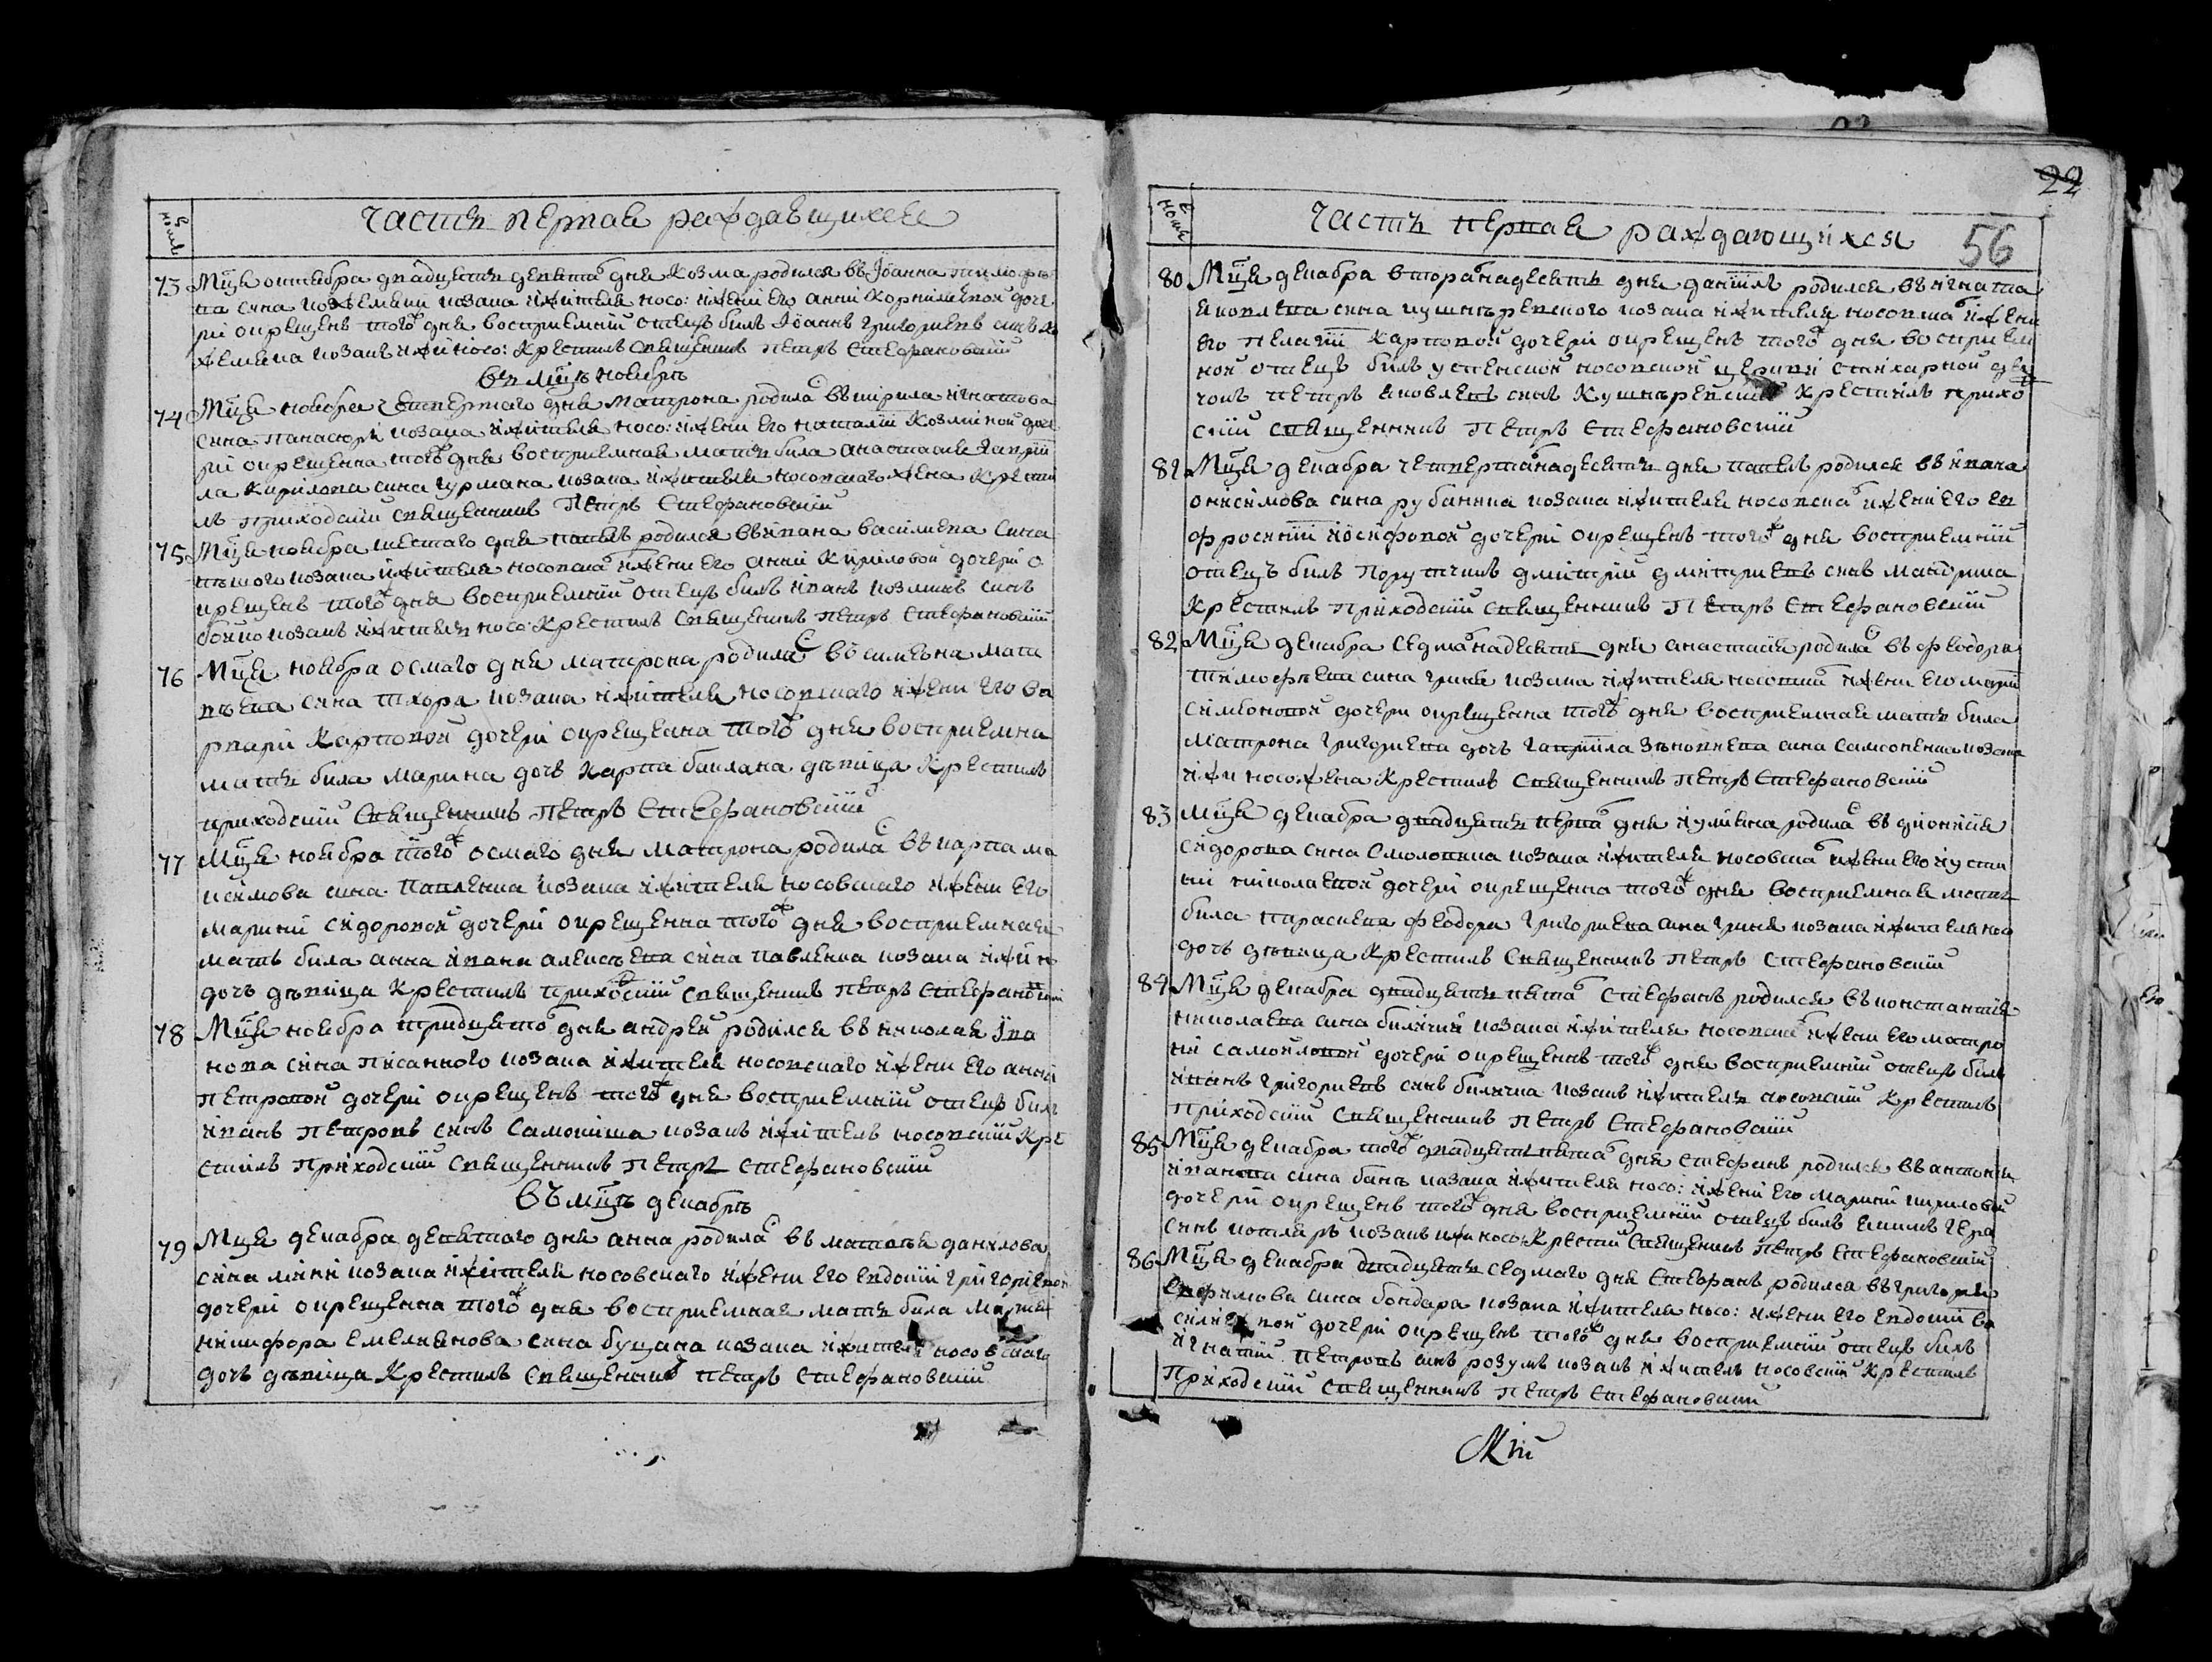 Часть первая раждающихсея
№
73 Мцⷭа октября двадцять девятоⷢ дня Козма родился въ Іоанна тимофее
ва сина кожемяки козака и жителя носо: и жени его анни Корнилиевой доче
рі окрещенъ тогоⷤ дня восприемній отецъ билъ Іоаннъ григориевъ синъ ко
жемяка козакъ и жи носо: Крестилъ священникъ петръ Стефановскій
Въ мцⷭъ ноябръ
74 Мцⷭа ноября четвертаго дня матрона родилаⷭ въ кирила игнатова
сина панасюри козака и жителя носо: и жени его наталіи Козминой доче
рі окрещенна тогоⷤ дня восприемная мать била анастасия гаврій
ла Кирилова сина гурмана козака и жителя носовского жена Крести
лъ приходскій священникъ Петръ Стефановскій
75 Мцⷭа ноября шестаго дня павелъ родился въ ивана василиева сина
козака и жителя носовскаⷢ и жени его анни Кириловой дочері о
крещенъ тогоⷤ дня восприемній отецъ билъ иванъ козминъ синъ
бойко козакъ и житель носо: Крестилъ священникъ петръ Стефановскій
76 Мцⷭа ноября осмаго дня матрона родилаⷭ въ симеона мат
въева сина тхора козака и жителя носовскаго и жени его ва
рвари Карповой дочері окрещенна тогоⷤ дня восприемна
мать била марина дочь Карпа баклана дъвица Крестилъ
приходскій Священникъ Петръ Стефановскій
77 Мцⷭа ноября тогоⷤ осмаго дня матрона родилаⷭ въ карпа ма
ксимова сина павленка козака и жителя носовского и жени его
мариni сидоровой дочері окрещенна тогоⷤ дня восприемная
мать била анна ивана алексъева сина павленка козака и жи н
дочь дъвица Крестилъ приходскій священникъ петръ Стефановскій
78 Мцⷭа ноября тридцятоⷢ дня андрей родился въ николая Ива
нова сина писанного козака и жителя носовского и жени его анни
петровой дочері окрещенъ тогоⷤ дня восприемній отецъ билъ
иванъ петровъ синъ Самокиша козакъ и житель носовскій Кре
стилъ приходскій священникъ петръ стефановскій
Въ мцⷭъ декабръ
79 Мцⷭа декабра девятаго дня анна родилаⷭ въ матвъя данилова
сина козака и жителя носовского и жени его евдокіи григориевой
дочері окрещенна тогоⷤ дня восприемная мать била
никифора емелиянова сина буцана козака и жителя носовскаго
дочь дъвица Крестилъ священникъ петръ стефановскій
22
56
Часть первая раждающихся
№
80 Мцⷭа декабра второⷢнадесять дня даніилъ родился въ игната
яковлева сина кушнъревского козака и жителя носовскаⷢ и жени
его пелагіи Карповой дочері окрещенъ тогоⷤ дня восприем
ной отецъ билъ успенской носовской церкви стихарной дя
чокъ петръ яковлевъ синъ Кушнъревскій Крестилъ прихо
скій священникъ Петръ Стефановскій
81 Мцⷭа декабра четвертаⷢнадесять дня павелъ родился въ ивана
онисимова сина рубанника козака и жителя носовскаⷢ и жени его ев
фросиніи иосифовой дочері окрещенъ тогоⷤ дня восприемній
отецъ билъ Порутчикъ дмитрій дмитриевъ синъ мандрика
Крестилъ приходскій священникъ Петръ Стефановскій
82 Мцⷭа декабра седмаⷢнадесять дня анастасія родилаⷭ въ феодора
тимофъева сина гриня козака и жителя носовскаⷢ и жени его маріи
симеоновой дочери окрещенна тогоⷤ дня восприемная мать била
матрона григориева дочь гавриила зъновиева сина Самоненка козака
и жи носо: жена Крестилъ священникъ петръ Стефановскій
83 Мцⷭа декабра двадцять перваⷢ дня иулияна родилаⷭ въ дионисия
сидорова сина Смолянка козака и жителя носовскаⷢ и жени его иусти
ні николаевой дочері окрещенна тогоⷤ дня восприемная мать
била параскева феодора григориева сина гриня козака и жителя носо
дочь дъвица Крестилъ священникъ петръ Стефановскій
84 Мцⷭа декабра двадцять пятаⷢ Стефанъ родился въ константія
николаева сина билячка козака и жителя носовскаⷢ и жени его матро
ні Самойловой дочері окрещенъ тогоⷤ дня восприемній отецъ билъ
иванъ григориевъ синъ билячка козакъ и житель носовскій Крестилъ
приходскій священникъ петръ Стефановскій
85 Мцⷭа декабра тогоⷤ двадцять пятаⷢ дня стефанъ родился въ антонія
ивана сина козака и жителя носо: и жени его марині кириловой
дочері окрещенъ тогоⷤ дня восприемній отецъ билъ
синъ котляръ козакъ и жи носо: Крестилъ священникъ петръ Стефановскій
86 Мцⷭа декабра двадцять седмаго дня Стефанъ родился въ григорія
ефимова сина бондара козака и жителя носо: и жени его евдокіи ва
силиевой дочері окрещенъ тогоⷤ дня восприемній отецъ билъ
игнатій петровъ синъ розумъ козакъ и житель носовскій Крестилъ
приходскій священникъ петръ Стефановскій